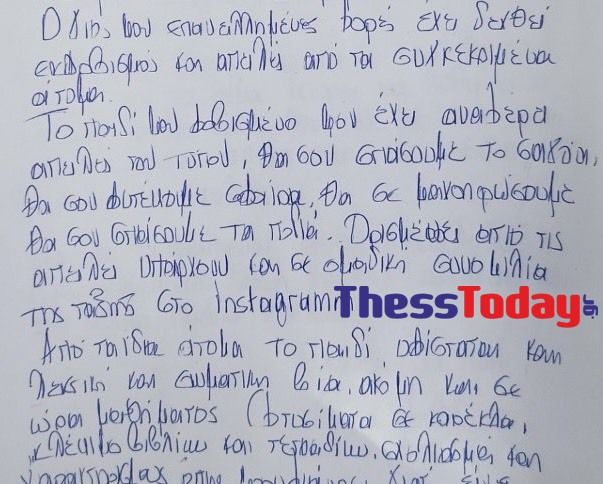 Ο υιός μου επανειλημμένες φορές έχει δεχθεί
εκφοβισμούς και απειλές από τα συγκεκριμένα
άτομα.
Το παιδί μου φοβισμένο μου έχει αναφέρει
απειλές του τύπου, θα σου σπάσουμε το σαγόνι,
θα σου φυτέψουμε σφαίρα, θα σε μαχαιρώσουμε
θα σου σπάσουμε τα πόδια. Ορισμένες από τις
απειλές υπάρχουν και σε ομαδική συνομιλία
της τάξης στο Instagram
ThessToday.gr
Από τα ίδια άτομα το παιδί υφίσταται και
λεκτική και σωματική βία, ακόμη και σε
ώρα μαθήματος (φτυσίματα σε καρέκλα,
κλέψιμο βιβλίων και τετραδίων, σχολιασμοί και